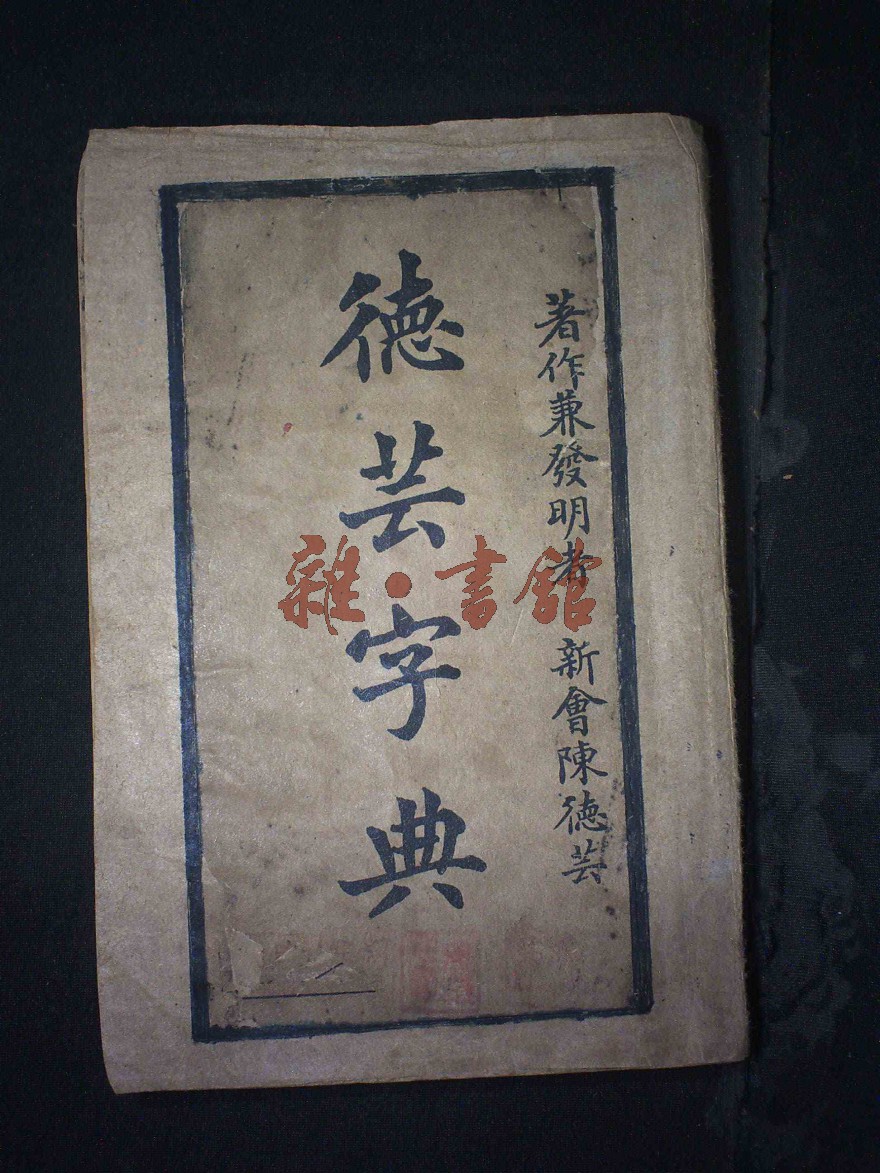 著作兼發明者　新會陳德芸
德芸字典
雜·書館